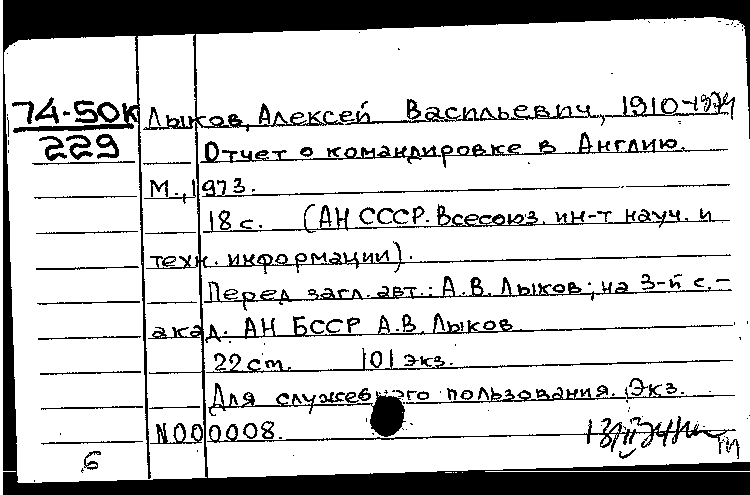 74-50К Лыков, Алексей Васильевич, 1910-1974
229 Отчет о командировке в Англию.
М., 1973.
18 с. (АН СССР. Всесоюз. ин-т науч. и
техн. информации).
Перед загл. авт.: А.В. Лыков; на 3-й с. -
акад. АН БССР А.В. Лыков.
22 cm. 101 экз.
Для служебного пользования. Экз.
N000008.
6